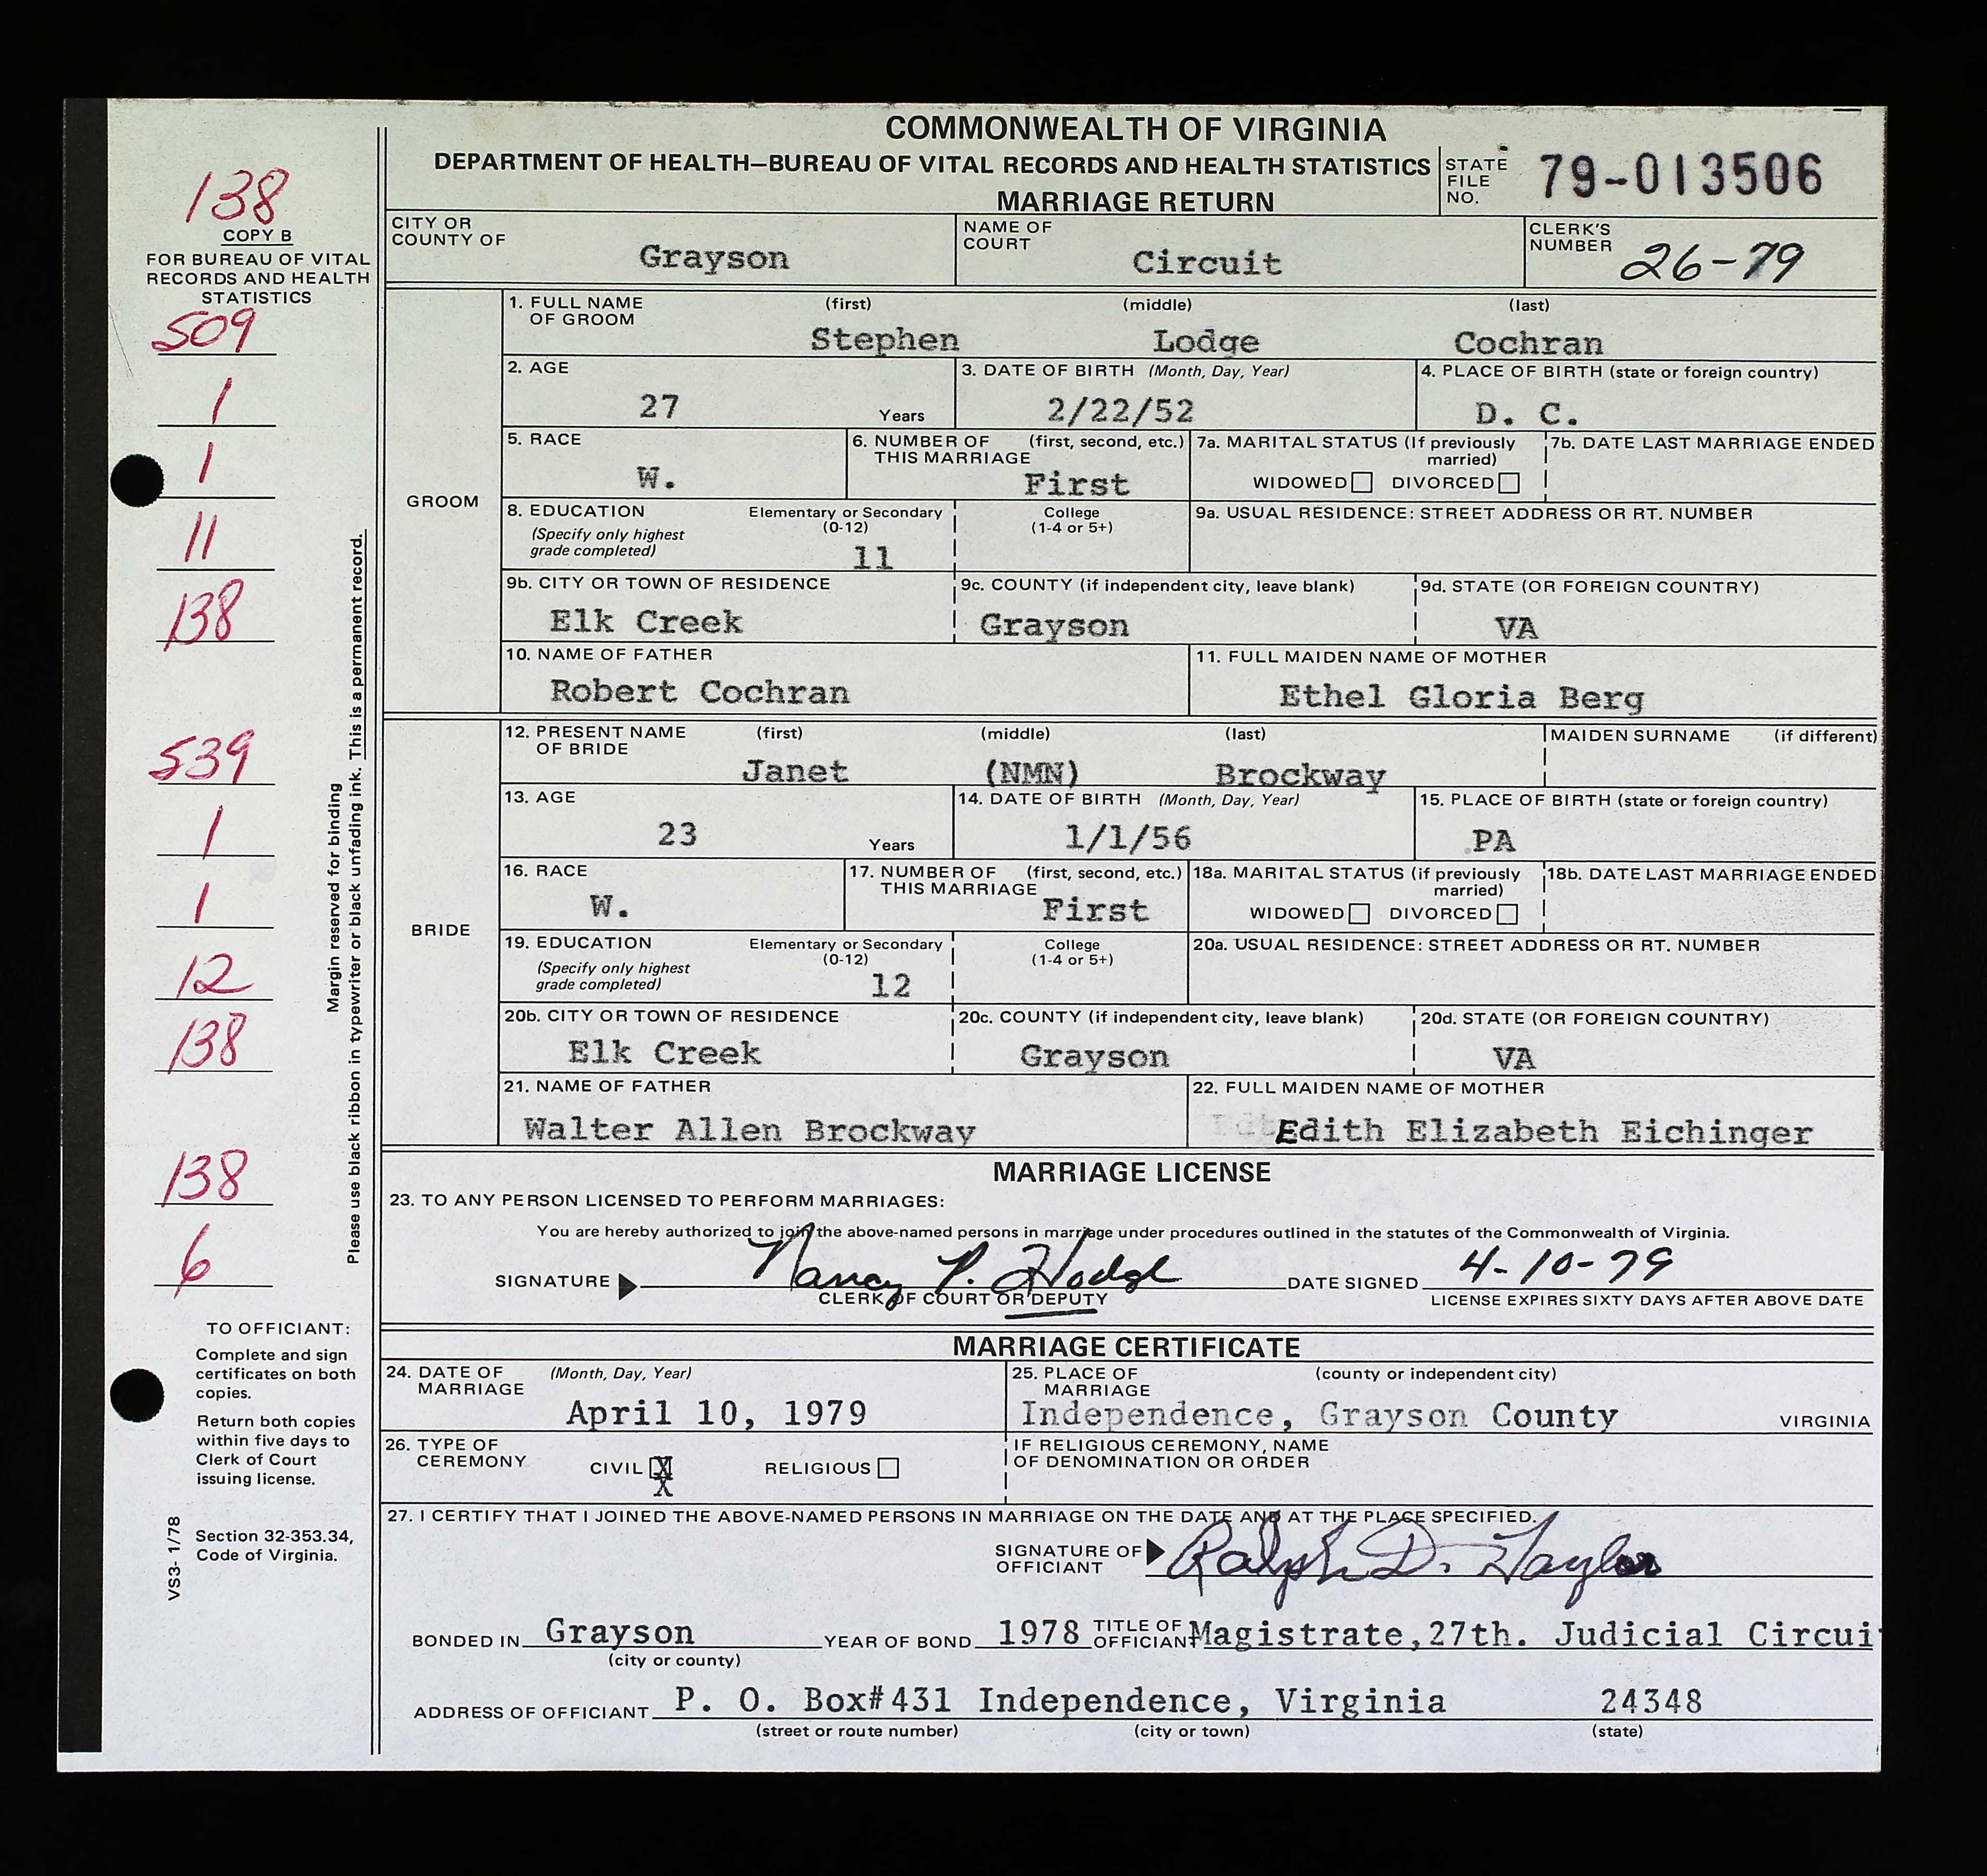 COMMONWEALTH OF VIRGINIA
DEPARTMENT OF HEALTH—BUREAU OF VITAL RECORDS AND HEALTH STATISTICS
MARRIAGE RETURN
STATE FILE NO. 79-013506
138
COPY B
FOR BUREAU OF VITAL
RECORDS AND HEALTH
STATISTICS
509
1
1
11
138
539
1
1
12
138
138
6
Margin reserved for binding
Please use black ribbon in typewriter or black unfading ink. This is a permanent record.
TO OFFICIANT:
Complete and sign
certificates on both
copies.
Return both copies
within five days to
Clerk of Court
issuing license.
Section 32-353.34,
Code of Virginia.
VS3- 1/78
CITY OR COUNTY OF Grayson
NAME OF COURT Circuit
CLERK'S NUMBER 26-79
GROOM
1. FULL NAME OF GROOM (first) (middle) (last)
Stephen Lodge Cochran
2. AGE 27 Years
3. DATE OF BIRTH (Month, Day, Year) 2/22/52
4. PLACE OF BIRTH (state or foreign country) D. C.
5. RACE W.
6. NUMBER OF THIS MARRIAGE (first, second, etc.) First
7a. MARITAL STATUS (If previously married)
WIDOWED DIVORCED
7b. DATE LAST MARRIAGE ENDED
8. EDUCATION (Specify only highest grade completed)
Elementary or Secondary (0-12) 11
College (1-4 or 5+)
9a. USUAL RESIDENCE: STREET ADDRESS OR RT. NUMBER
9b. CITY OR TOWN OF RESIDENCE Elk Creek
9c. COUNTY (if independent city, leave blank) Grayson
9d. STATE (OR FOREIGN COUNTRY) VA
10. NAME OF FATHER Robert Cochran
11. FULL MAIDEN NAME OF MOTHER Ethel Gloria Berg
BRIDE
12. PRESENT NAME OF BRIDE (first) (middle) (last) MAIDEN SURNAME (if different)
Janet (NMN) Brockway
13. AGE 23 Years
14. DATE OF BIRTH (Month, Day, Year) 1/1/56
15. PLACE OF BIRTH (state or foreign country) PA
16. RACE W.
17. NUMBER OF THIS MARRIAGE (first, second, etc.) First
18a. MARITAL STATUS (if previously married)
WIDOWED DIVORCED
18b. DATE LAST MARRIAGE ENDED
19. EDUCATION (Specify only highest grade completed)
Elementary or Secondary (0-12) 12
College (1-4 or 5+)
20a. USUAL RESIDENCE: STREET ADDRESS OR RT. NUMBER
20b. CITY OR TOWN OF RESIDENCE Elk Creek
20c. COUNTY (if independent city, leave blank) Grayson
20d. STATE (OR FOREIGN COUNTRY) VA
21. NAME OF FATHER Walter Allen Brockway
22. FULL MAIDEN NAME OF MOTHER Edith Elizabeth Eichinger
MARRIAGE LICENSE
23. TO ANY PERSON LICENSED TO PERFORM MARRIAGES:
You are hereby authorized to join the above-named persons in marriage under procedures outlined in the statutes of the Commonwealth of Virginia.
SIGNATURE Nancy P. Hodge DATE SIGNED 4-10-79
CLERK OF COURT OR DEPUTY LICENSE EXPIRES SIXTY DAYS AFTER ABOVE DATE
MARRIAGE CERTIFICATE
24. DATE OF MARRIAGE (Month, Day, Year) April 10, 1979
25. PLACE OF MARRIAGE (county or independent city) Independence, Grayson County VIRGINIA
26. TYPE OF CEREMONY CIVIL X RELIGIOUS
IF RELIGIOUS CEREMONY, NAME OF DENOMINATION OR ORDER
27. I CERTIFY THAT I JOINED THE ABOVE-NAMED PERSONS IN MARRIAGE ON THE DATE AND AT THE PLACE SPECIFIED.
SIGNATURE OF OFFICIANT Ralph D. Taylor
BONDED IN Grayson YEAR OF BOND 1978 TITLE OF OFFICIANT Magistrate,27th. Judicial Circui
(city or county)
ADDRESS OF OFFICIANT P. O. Box#431 Independence, Virginia 24348
(street or route number) (city or town) (state)